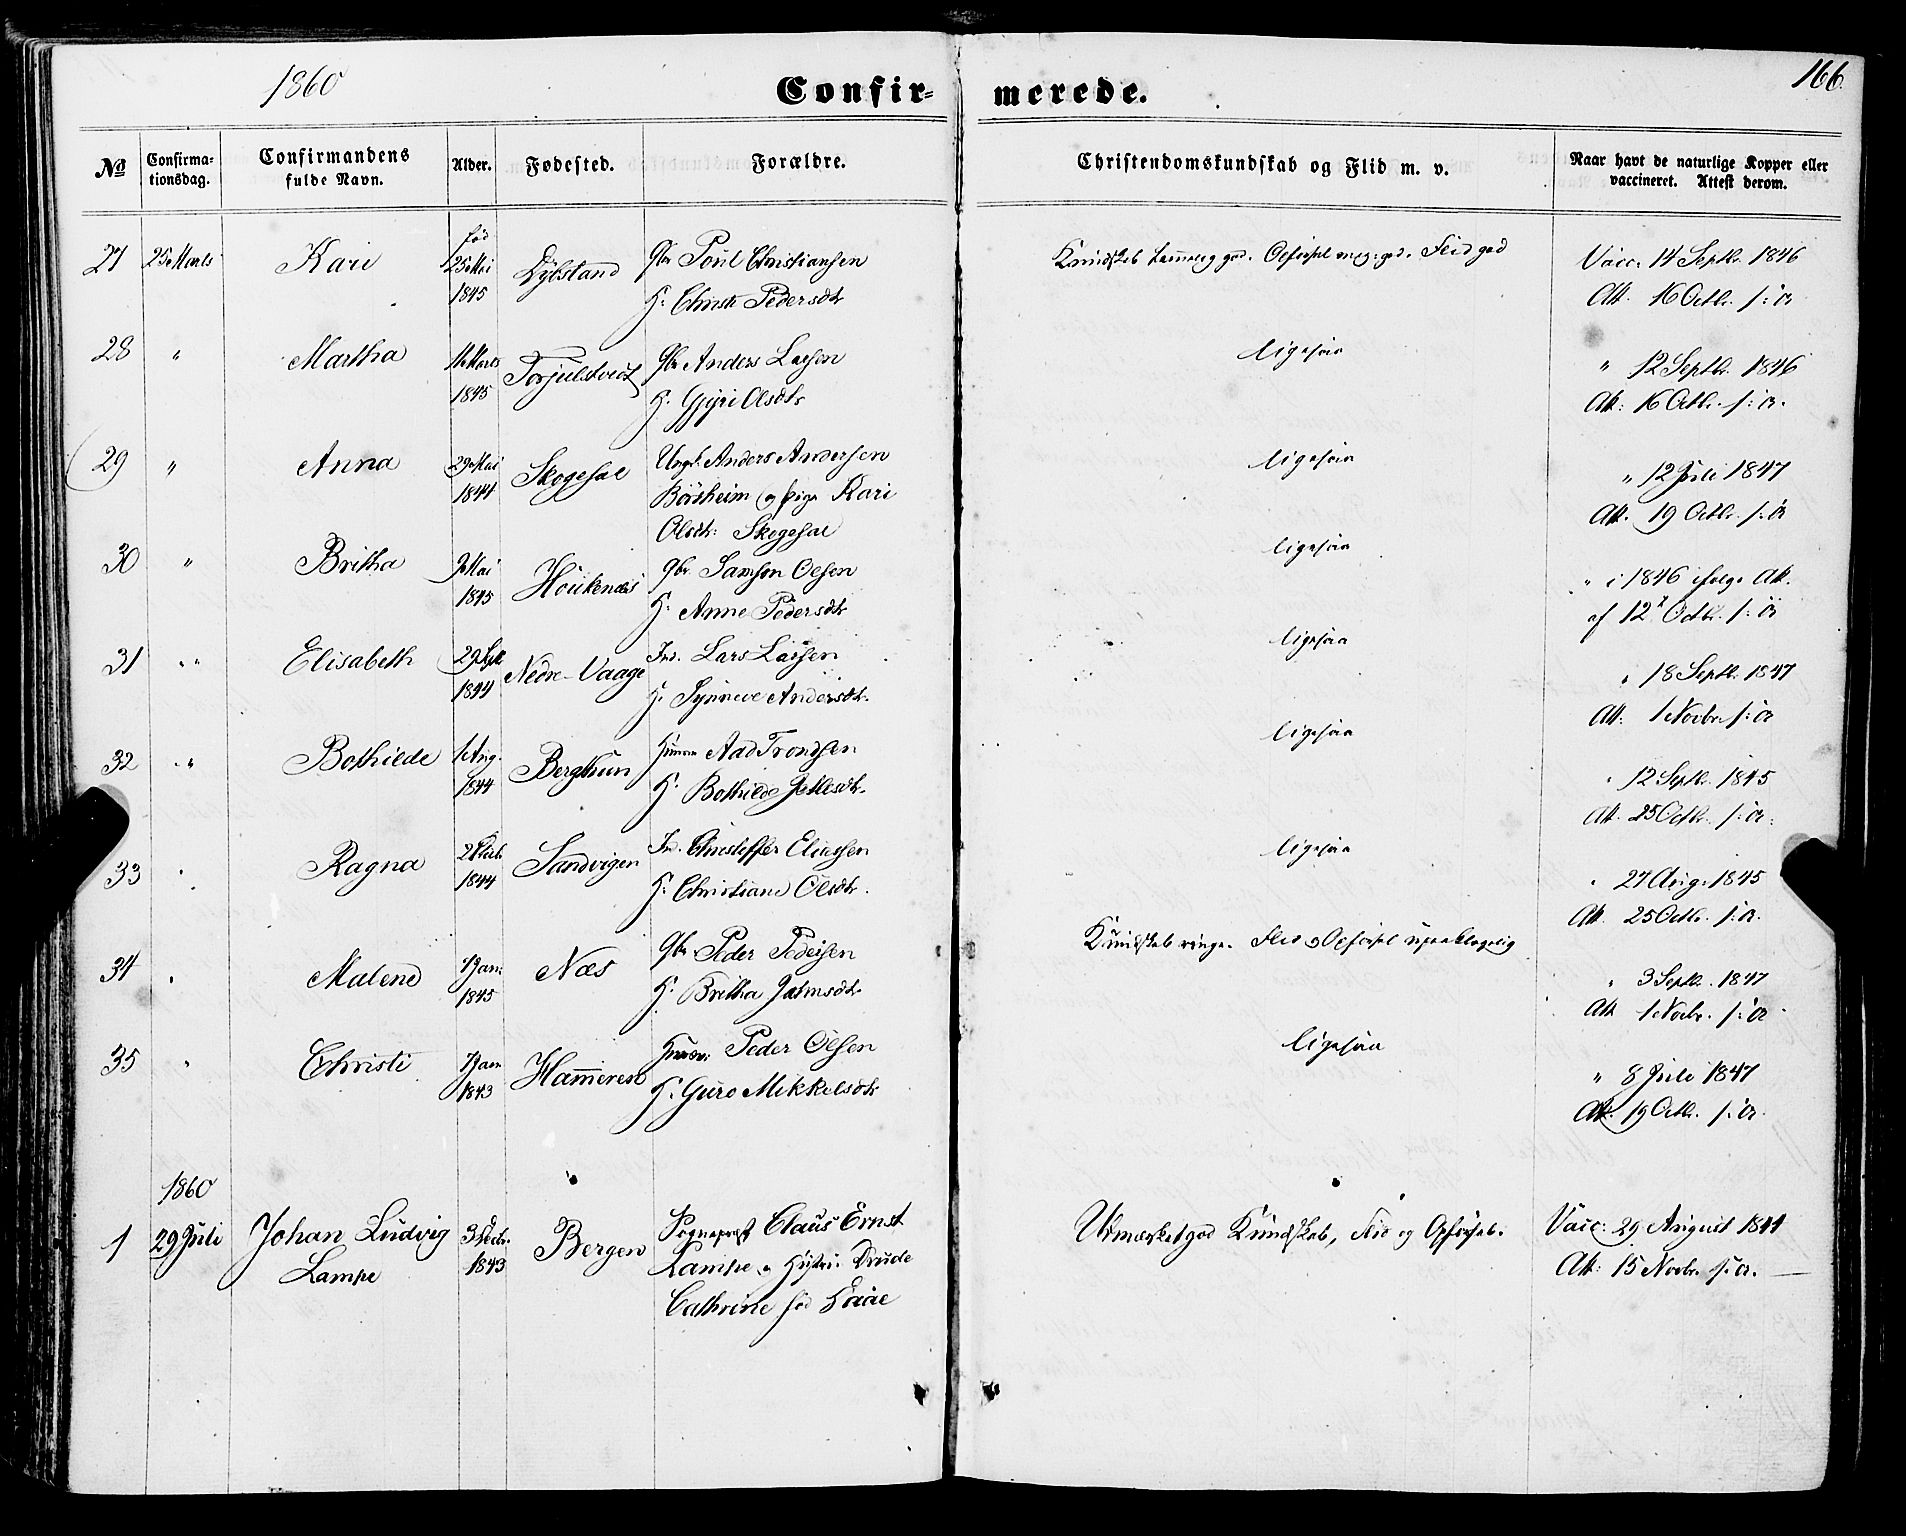 1860
Confir- merede.
166.
№
Confirma-
tionsdag.
Confirmandens
fulde Navn.
Alder.
Fødested.
Forældre.
Christendomskundskab og Flid m. v.
Naar havt de naturlige Kopper eller
vaccineret. Attest derom.
27 25 Marts Kari
fød
25 Mai
1845
Gbr Poul Christiansen
H: Christi Pedersdtr
Flid god
Vacc. 14 Septbr. 1846
Att. 16 Octbr. s: A
28 " Martha
Marts
1845
Gbr Anders
H. Olsdtr
ligesaa
" 12 Septbr. 1846
Att: 16 Octbr. s: A.
29 " Anna 29 Mai
1844
Ungk. Anders Andersen
Børsheim og Pige Kari
Olsdtr:
ligesaa
" 12 Juli 1847
Att. 19 Octbr. s: A
30 " Britha
Mai
1845
Gbr. Samson Olsen
H. Anne Pedersdtr
ligesaa
" i 1846 ifølge Att.
af 12 Octbr. s: A
31 " Elisabeth
29
1844
Nedre-Vaage
Ind. Lars Larsen
H. Synneve Andersdtr.
ligesaa
" 18 Septbr. 1847
Att: 1 Novbr. s: A
32 " Bothilde 1 Aug.
1844
Husm Aad Trondsen
H. Bothilde
ligesaa
" 12 Septbr. 1845
Att. 25 Octbr. s: A.
33 " Ragna
1844
Sandvigen
Ind. Christoffer Eliassen
H. Christiane Olsdtr.
ligesaa
" 27 Aug. 1845
Att. 25 Octbr. s: A.
34 " Malene
Jan.
1845
Næs
Gbr Peder Pedersen
H: Britha
Kundskab ringe. Flid og Opførsel upaaklagelig
" 3 Septbr. 1847
Att 1 Novbr. s: A
35 " Christi
Jan
1843
Hammeren
Husm: Peder Olsen
H. Guro Mikkelsdtr
ligesaa
" 8 Juli 1847
Att: 19 Octbr. s: A.
1860
1 29 Juli Johan Ludvig
Lampe
3 Decbr.
1843
Bergen
Sogneprest Claus Ernst
Lampe og Hustru Drude
Cathrine fød
Udmærket god Kundskab, Flid og Opførsel.
Vacc: 29 August 1844
Att: 15 Novbr. s: A.